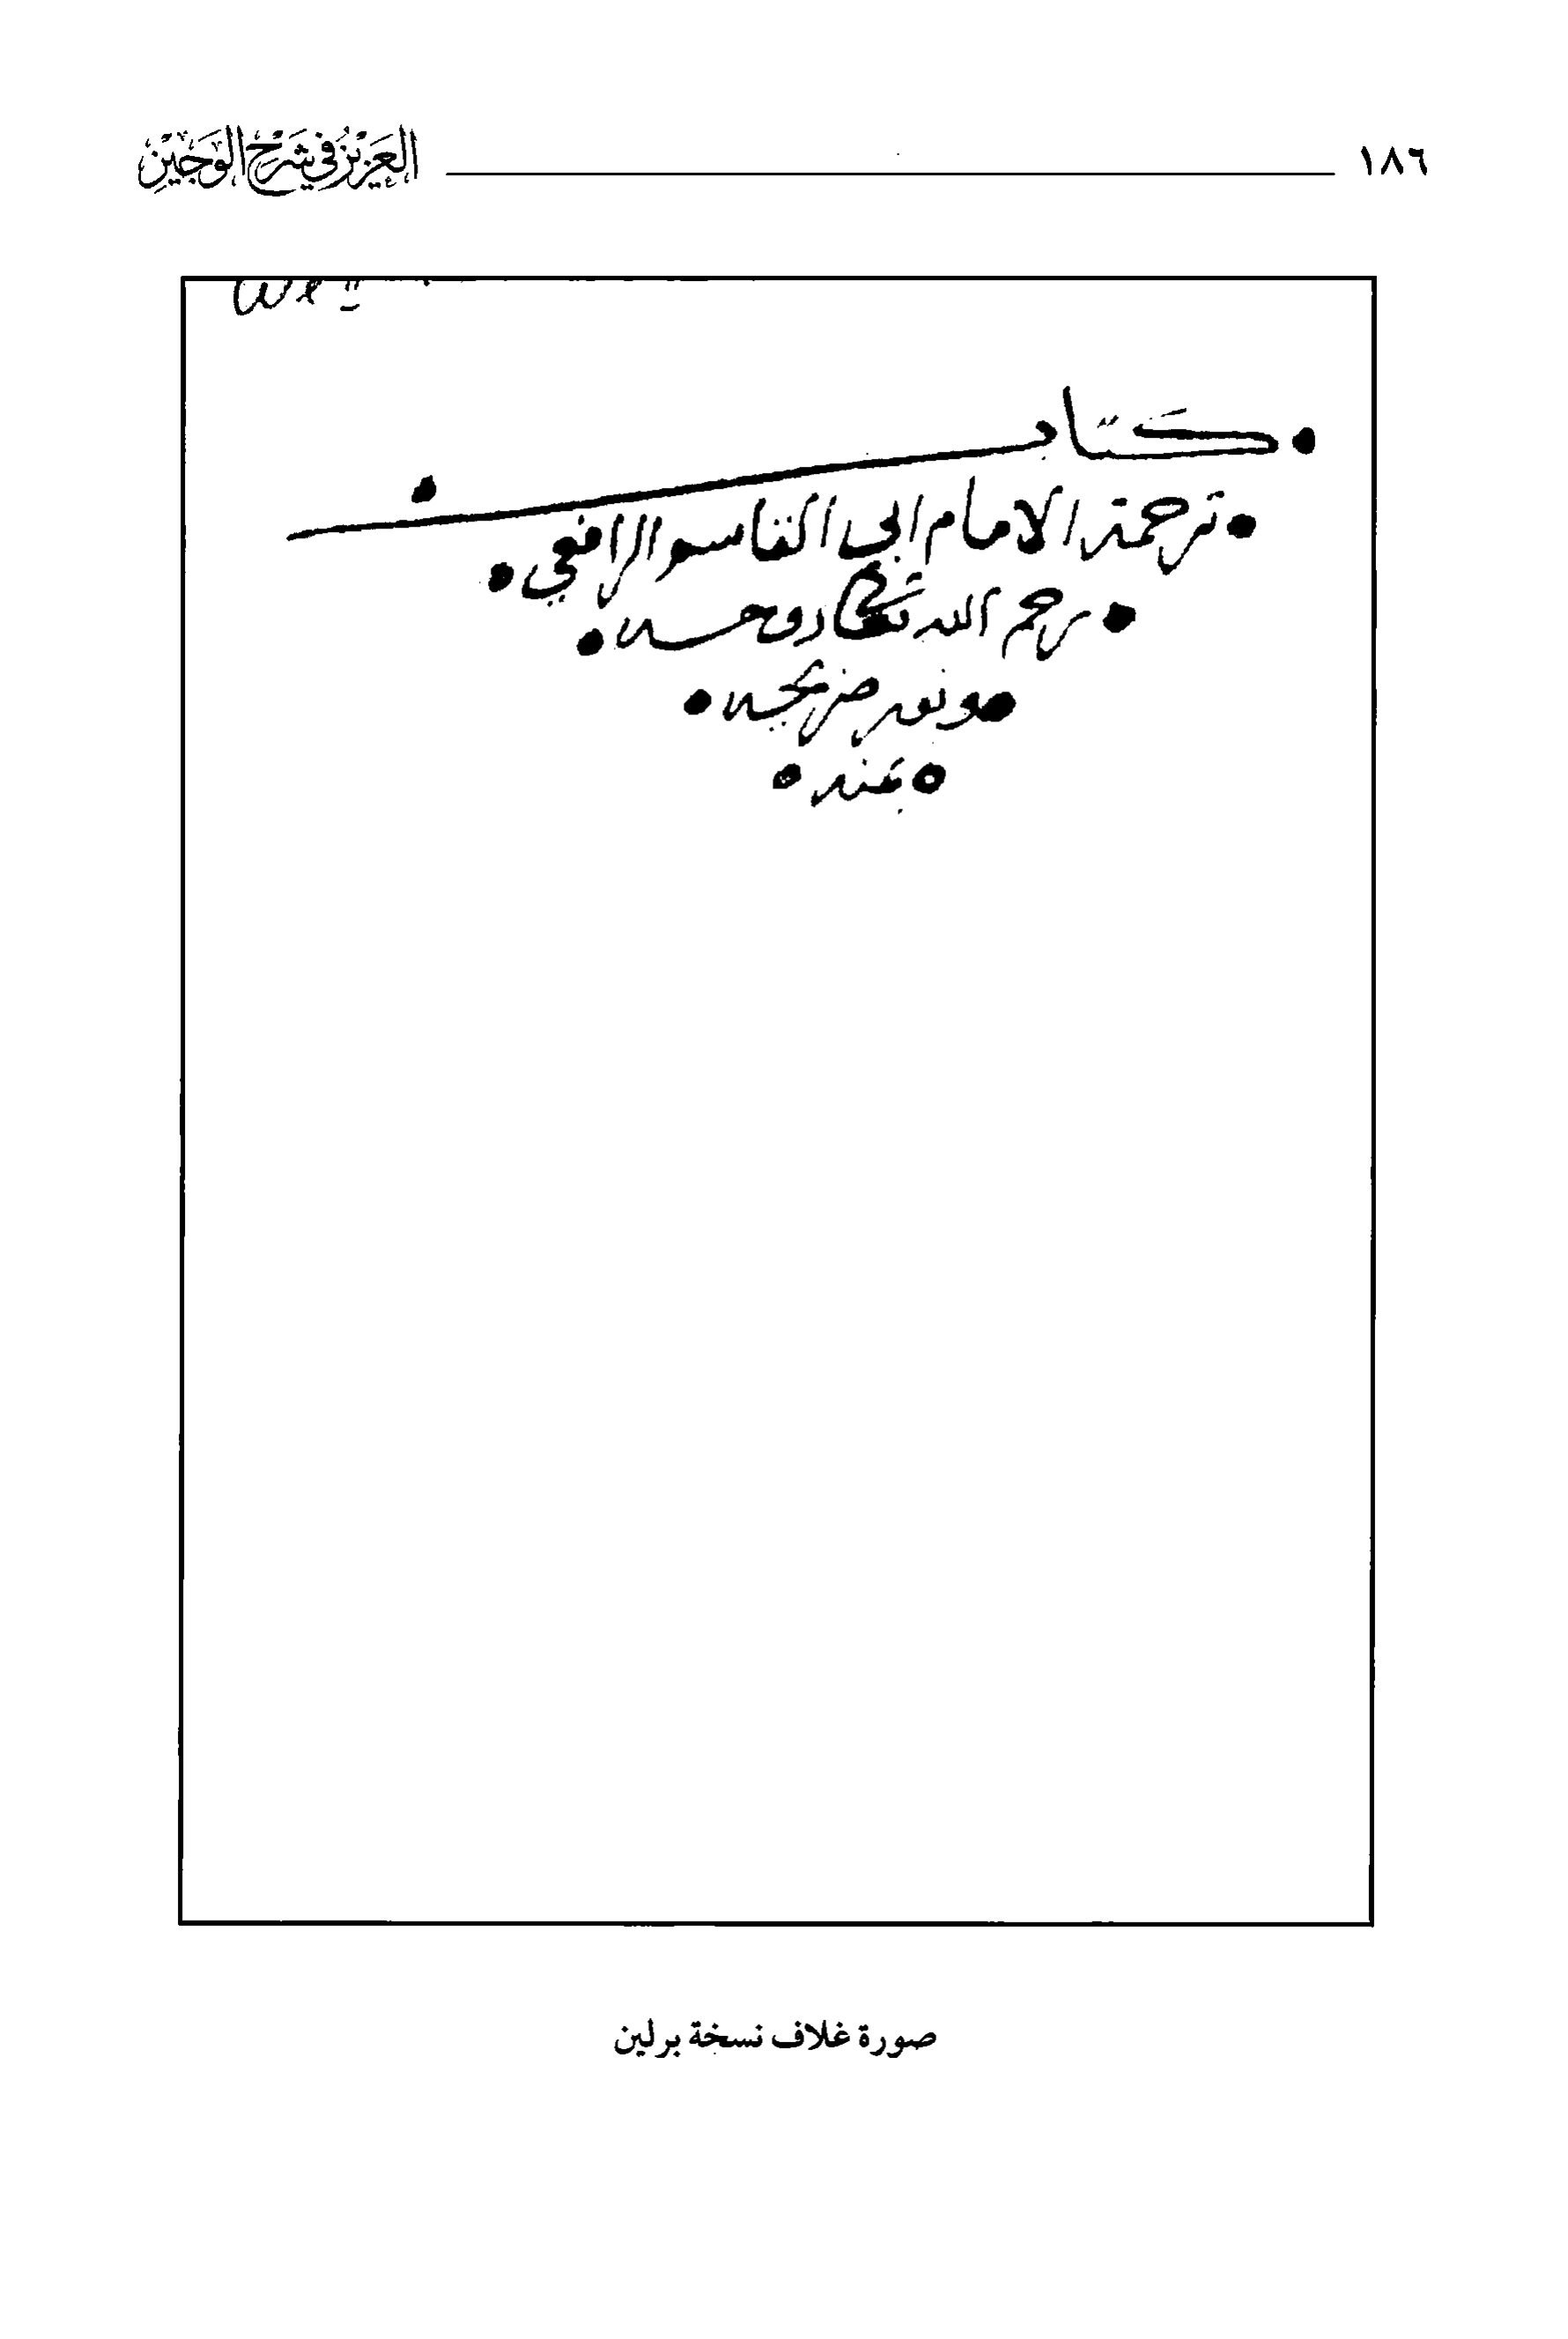 ١٨٦ العزيز في شرح الوجيز
كتاب
ترجمة الامام ابى القاسم الرافعي
رحمه الله تعالى وقدس روحه
ونور ضريحه
بمنه
صورة غلاف نسخة برلين